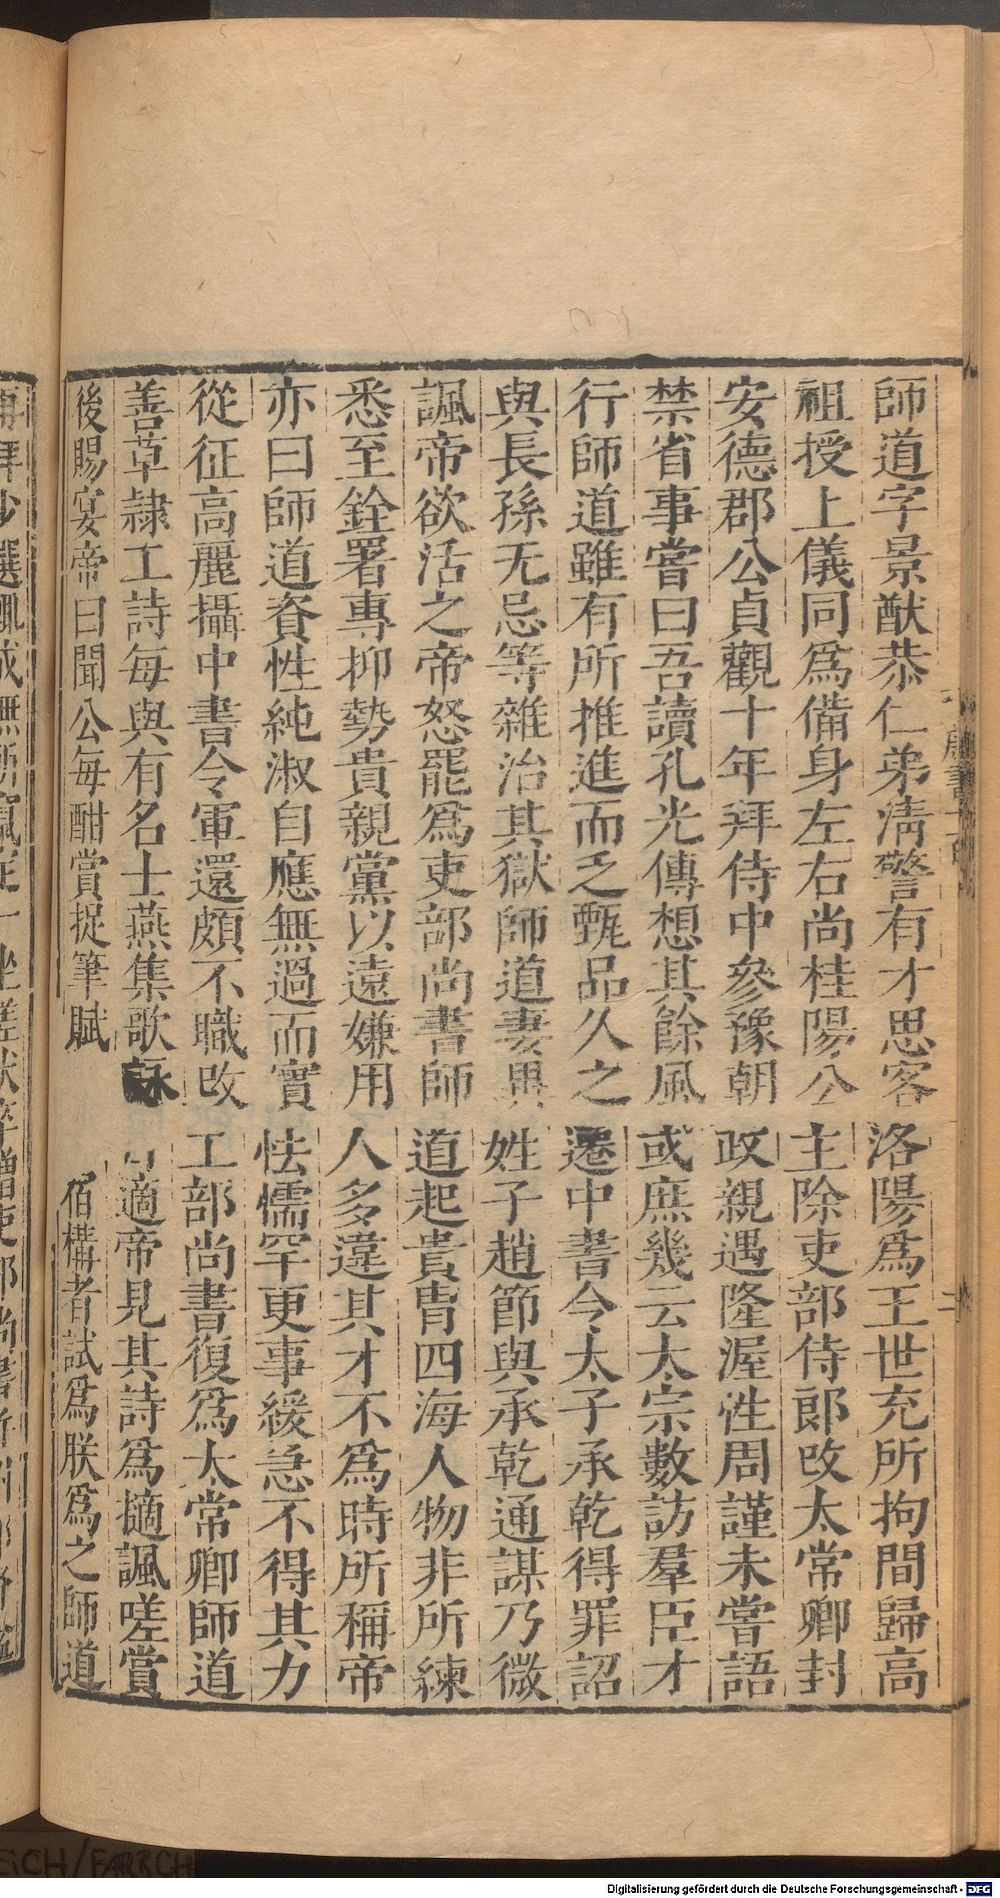 師道字景猷恭仁弟淸警有才思客洛陽爲王世充所拘間歸高
祖授上儀同爲備身左右尚桂陽公主除吏部侍郎改太常卿封
安德郡公貞觀十年拜侍中參豫朝政親遇隆渥性周謹未嘗語
禁省事嘗曰吾讀孔光傳想其餘風或庶幾云太宗數訪羣臣才
行師道雖有所推進而乏甄品久之遷中書令太子承乾得罪詔
與長孫无忌等雜治其獄師道妻異姓子趙節與承乾通謀乃微
諷帝欲活之帝怒罷爲吏部尚書師道起貴胄四海人物非所練
悉至銓署專抑勢貴親黨以遠嫌用人多違其才不爲時所稱帝
亦曰師道資性純淑自應無過而實怯懦罕更事緩急不得其力
從征高麗攝中書令軍還頗不職改工部尚書復爲太常卿師道
善草隷工詩每與有名士燕集歌適帝見其詩爲擿諷嗟賞
後賜宴帝曰聞公每酣賞捉筆賦宿構者試爲朕爲之師道
再拜少選輒成無所竄定一坐嗟伏卒贈吏部尚書
唐書
Digitalisierung gefördert durch die Deutsche Forschungsgemeinschaft - DFG